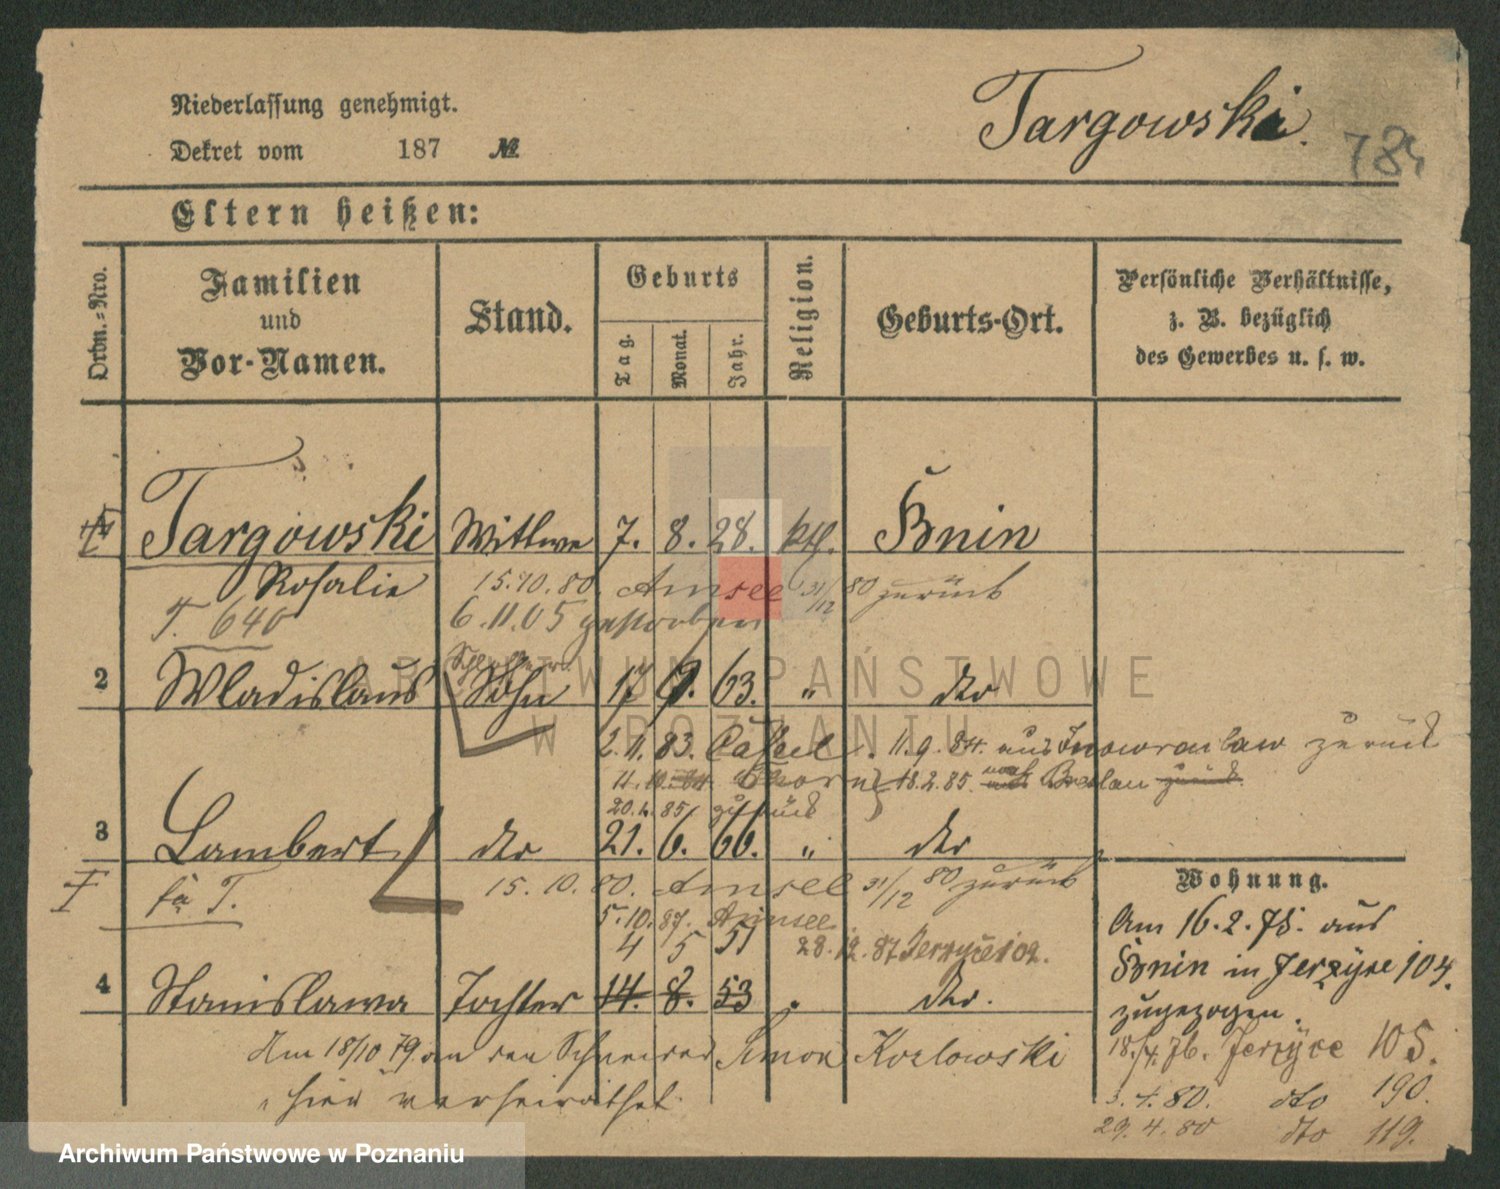 Niederlassung genehmigt.
Targowski.
Dekret vom 187 №
Eltern heißen:
Ordn.-Nro.
Familien und Vor-Namen.
Stand.
Geburts
Tag.
Monat.
Jahr.
Religion.
Geburts-Ort.
Persönliche Verhältnisse,
z. B. bezüglich
des Gewerbes u. s. w.
Targowski Wittwe 7. 8. 28. ktl. Bnin
Rosalie 15.10.80. Amsee 31/12 80 zurück
T. 640 6.11.05 gestorben
2 Wladislaus Sohn 17 9. 63. " dto
2.11.83. Cassel. 11.9.84. aus Inowraclaw zurück
18.2.85. nach Breslau zurück
20. 85 zurück
3 Lambert dto 21. 6. 66. " dto
fa T. 15.10.80. Amsee 31/12 80 zurück
5.10.87. Amsee
4 5 51 28.12.87 Jerzyce 102.
4 Stanislawa Tochter 14. 8. 53 " dto.
Am 18/10 79 an den Schneider Simon Kozlowski
hier verheirathet.
Wohnung.
Am 16.2.75. aus
Bnin in Jerzyce 104.
zugezogen.
18./4.76. Jerzyce 105.
3.4.80. dto 190.
29.4.80 dto 119.
ARCHIWUM PAŃSTWOWE
W POZNANIU
Archiwum Państwowe w Poznaniu